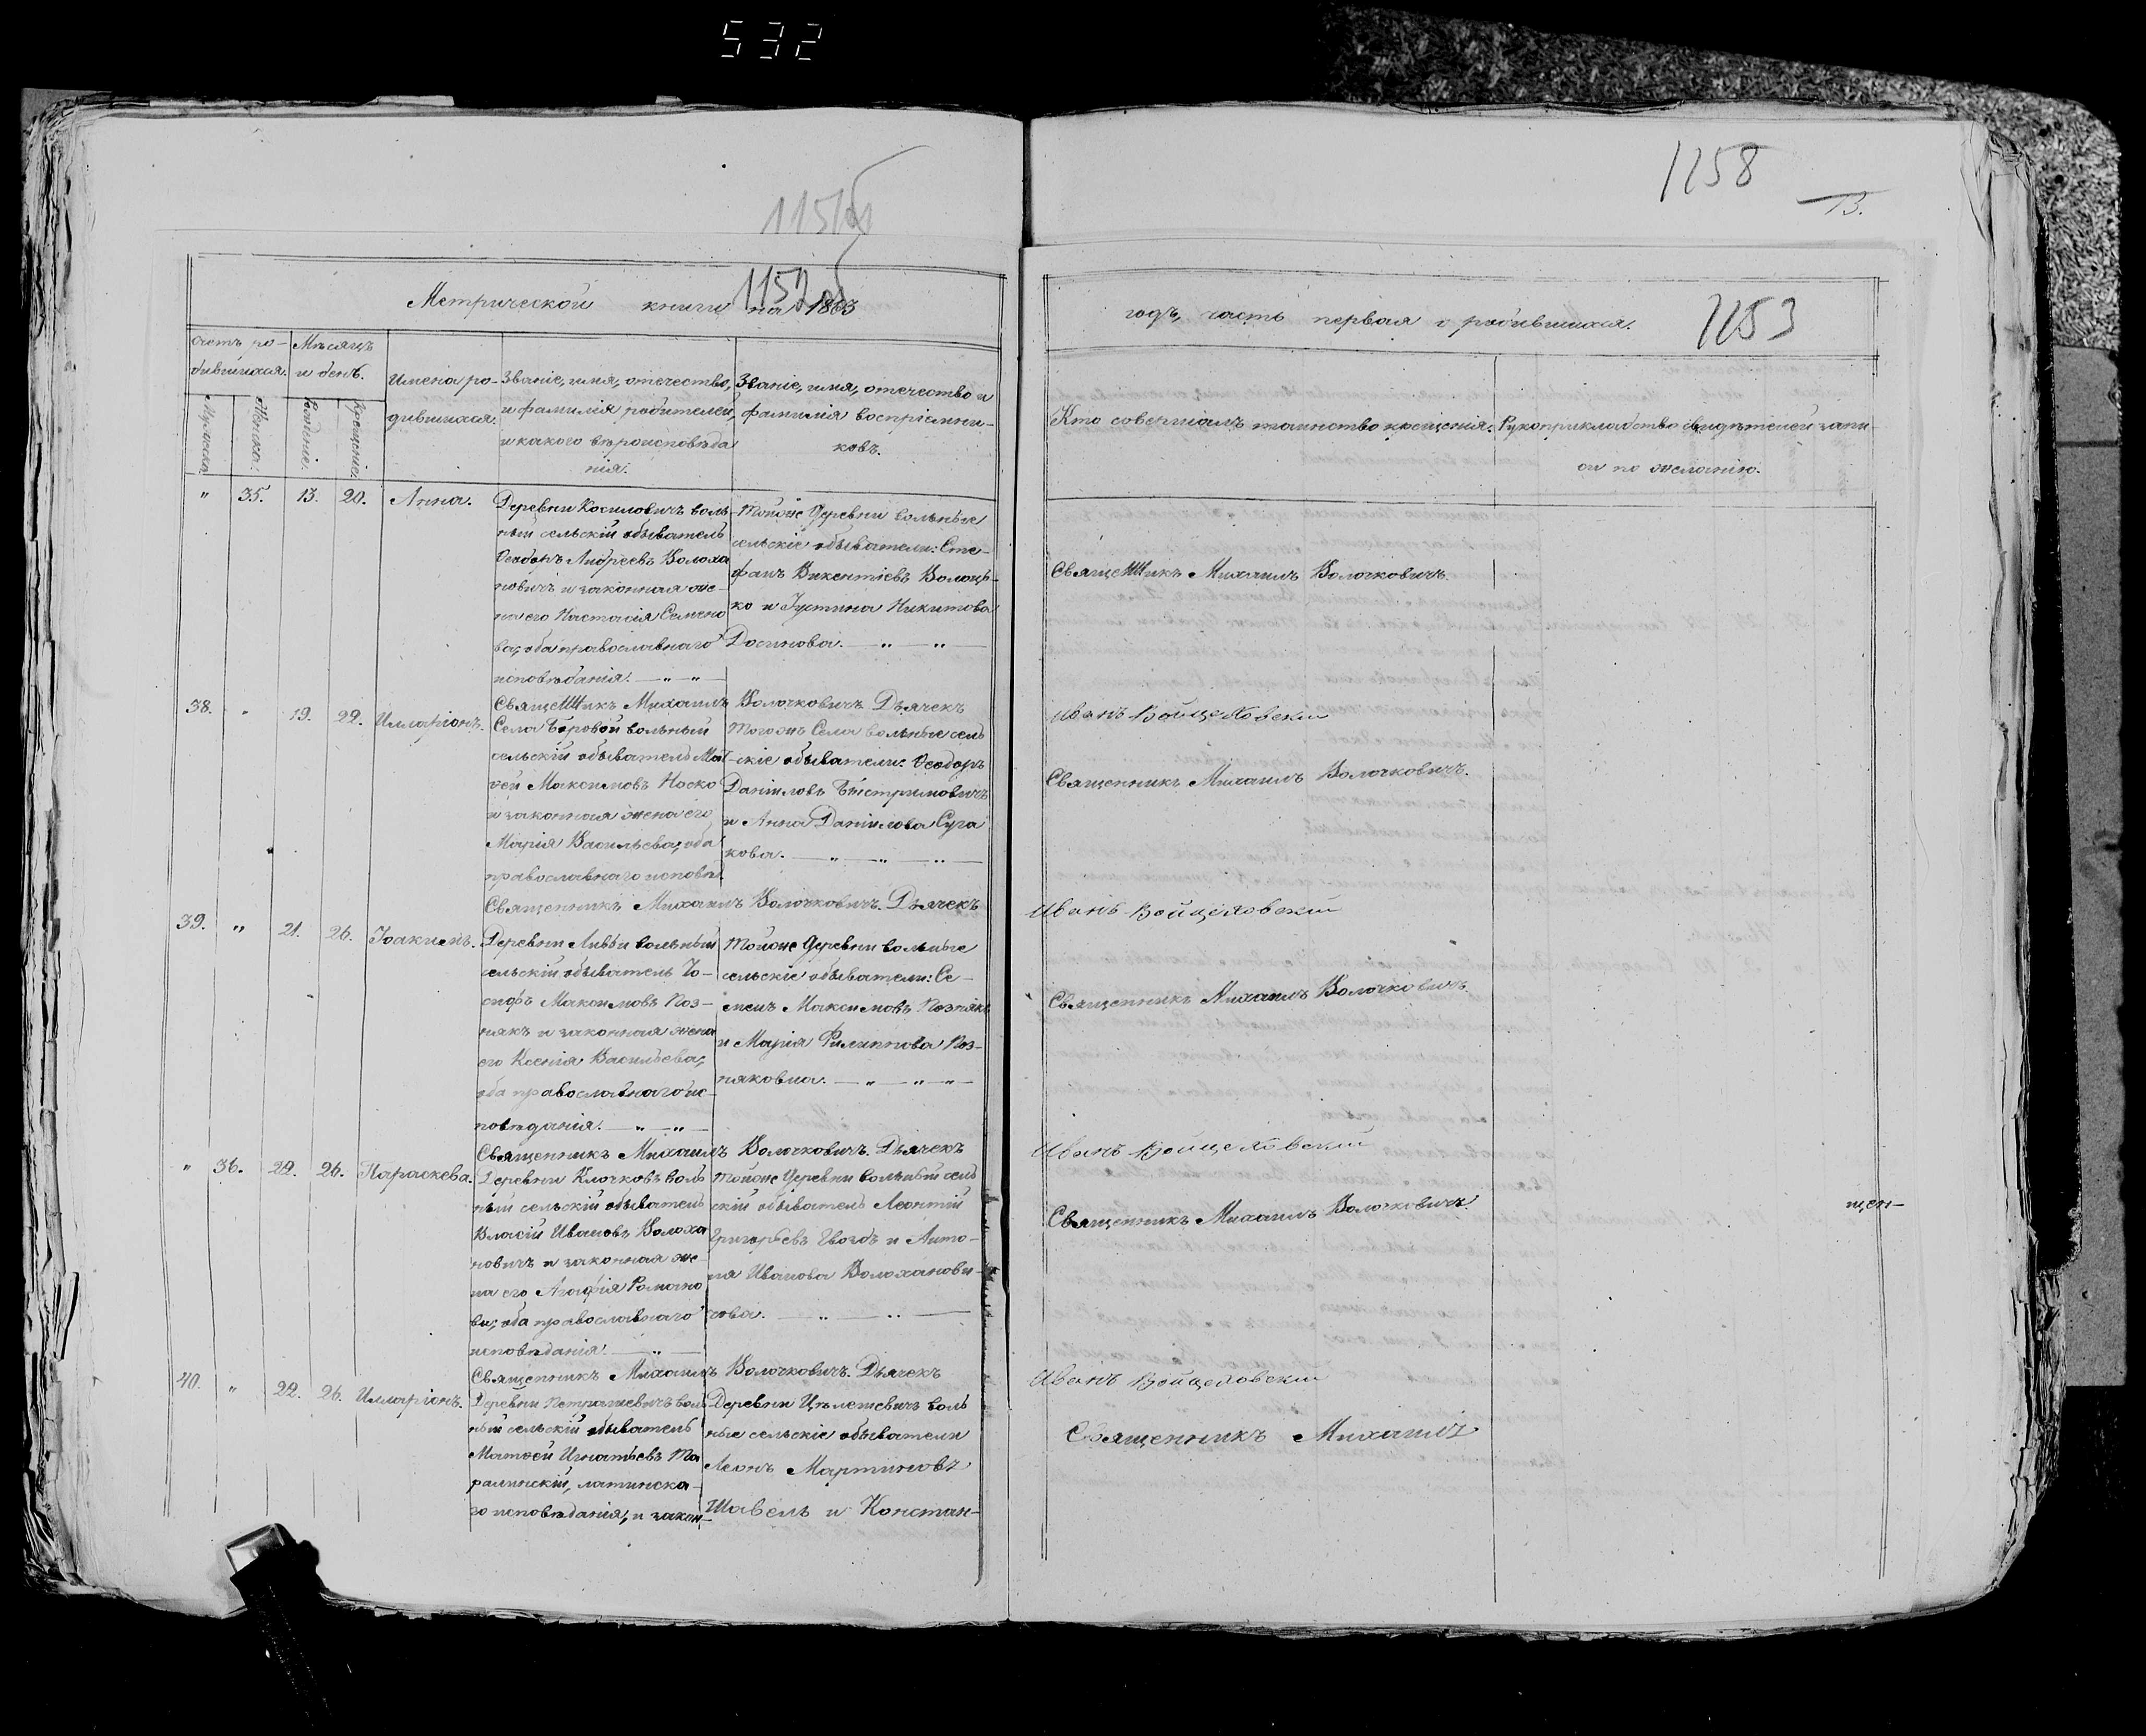 532
1158
13.
1151об
1152об
Метрической книги на 1863
годъ, часть первая о родившихся.
1153
Счетъ ро-
дившихся.
Мѣсяцъ
и день.
Мужска.
Женска.
Рожденіе.
Крещеніе.
Имена ро-
дившихся.
Званіе, имя, отечество,
и фамилія родителей,
и какого вѣроисповѣда
нія.
Званіе, имя, отечество и
фамилія воспріемни-
ковъ.
Кто совершалъ таинство крещенія.
Рукоприкладство свидѣтелей запи
си по желанію.
" 35. 13. 20. Анна.
Деревни Косиловичъ воль-
ный сельскій обыватель
Ѳеодоръ Андреевъ Волоха
новичъ и законная же-
на его Настасія Семено
ва, оба православнаго
исповѣданія. — " — " —
Тойже Деревни вольные
сельскіе обыватели: Сте-
фанъ Викентіевъ Волоць-
ко и Іустина Никитова
Досинова. — " — " —
Священникъ Михаилъ Волочковичъ.
Священникъ Михаилъ Волочковичъ. Дьячекъ
Иванъ Войцеховскій
38. " 19. 22. Илларіонъ.
Села Боровой вольный
сельскій обыватель Мат-
ѳей Максимовъ Носко
и законная жена его
Марія Васильева, оба
православнаго исповѣд.
Тогожъ Села вольные сель
скіе обыватели: Ѳеодоръ
Даніиловъ Быстримовичъ
и Анна Даніилова Суга
кова. — " — " — " —
Священникъ Михаилъ Волочковичъ.
Священникъ Михаилъ Волочковичъ. Дьячекъ
Иванъ Войцеховскій
39. " 21. 26. Іоакимъ.
Деревни Ливьи вольный
сельскій обыватель Іо-
сифъ Максимовъ Поз-
някъ и законная жена
его Ксенія Васильева,
оба православнаго ис-
повѣданія. — " — " —
Тойже Деревни вольные
сельскіе обыватели: Се-
менъ Максимовъ Познякъ
и Марія Филиппова Поз-
няковна. — " — " — " —
Священникъ Михаилъ Волочковичъ.
Священникъ Михаилъ Волочковичъ. Дьячекъ
Иванъ Войцеховскій
" 36. 22. 26. Параскева.
Деревни Клочковъ воль
ный сельскій обыватель
Власій Ивановъ Волоха
новичъ и законная же-
на его Агафія Романо
ва, оба православнаго
исповѣданія. — " —
Тойже Деревни вольный сель
скій обыватель Леонтій
Григорьевъ Гвоздь и Анто-
ня Иванова Волоханови-
чова. — " — " —
Священникъ Михаилъ Волочковичъ.
щен-
Священникъ Михаилъ Волочковичъ. Дьячекъ
Иванъ Войцеховскій
40. " 22. 26. Илларіонъ.
Деревни Петрашевичъ воль
ный сельскій обыватель
Матѳей Игнатьевъ
латинска-
го исповѣданія, и закон-
Деревни Цѣлешевичъ воль
ные сельскіе обыватели
Леонъ Мартиновъ
Шавель и Констан-
Священникъ Михаилъ